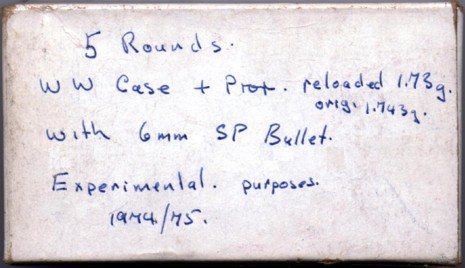 5 Rounds.
WW Case + Prot. reloaded 1.73g.
orig. 1.743g.
with 6mm SP Bullet.
Experimental. purposes.
1974/75.